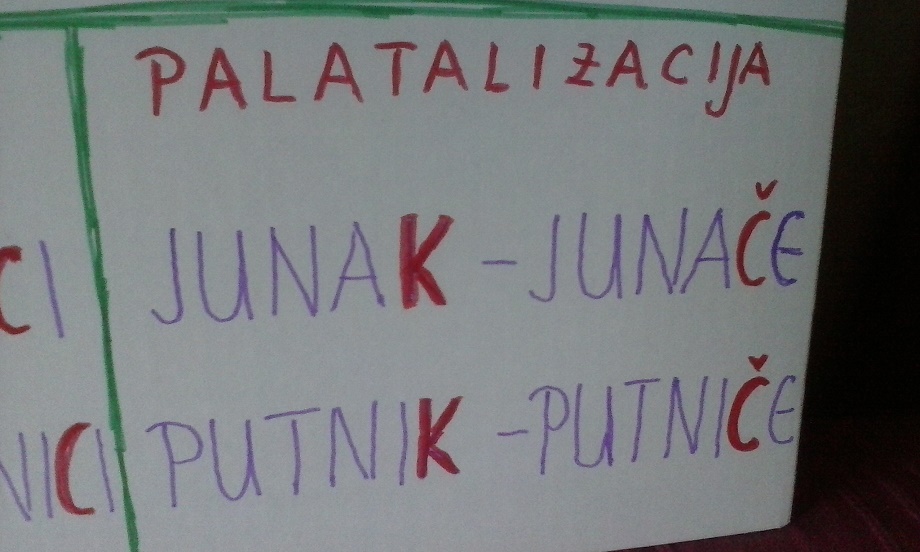 PALATALIZACIJA
CI JUNAK - JUNAČE
NICI PUTNIK - PUTNIČE